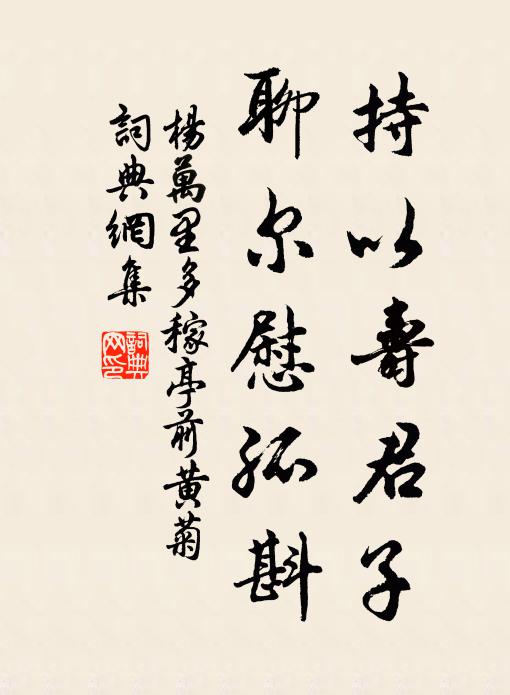 持以壽君子
聊尔慰孤斟
楊萬里多稼亭前黃菊
詞典網集
詞典网印